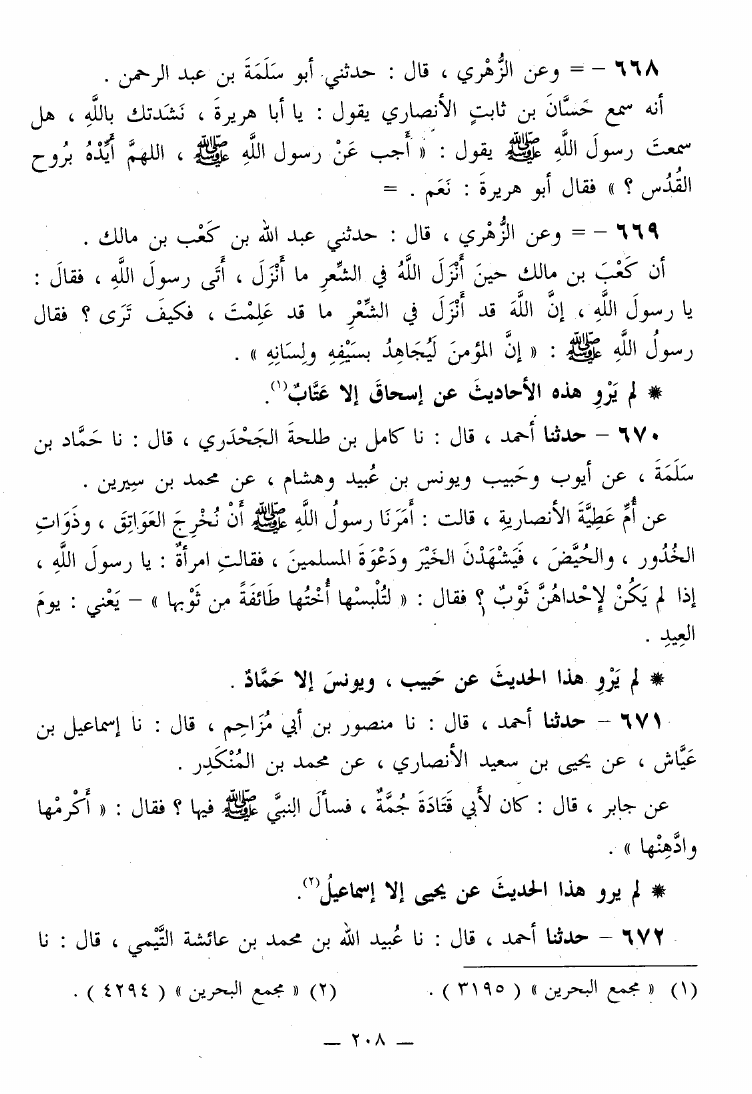 ٦٦٨ – = وعن الزُّهْري ، قال : حدثني أبو سَلَمَةَ بن عبد الرحمن .
أنه سمع حَسَّانَ بن ثابتٍ الأنصاري يقول : يا أبا هريرةَ ، نَشَدتك باللَّهِ ، هل
سمعتَ رسولَ اللَّهِ ﷺ يقول : « أَجب عَنْ رسول اللَّهِ ﷺ ، اللهمَّ أَيِّدْهُ بُروح
القُدُس ؟ » فقال أبو هريرةَ : نَعَم . =
٦٦٩ – = وعن الزُّهْري ، قال : حدثني عبد الله بن كَعْب بن مالك .
أن كَعْبَ بن مالك حينَ أَنْزَلَ اللَّهُ في الشِّعرِ ما أَنْزَلَ ، أَتَى رسولَ اللَّهِ ، فقالَ :
يا رسولَ اللَّهِ ، إنَّ اللَّهَ قد أَنْزَلَ في الشِّعْرِ ما قد عَلِمْتَ ، فكيفَ تَرَى ؟ فقال
رسولُ اللَّهِ ﷺ : « إنَّ المؤمنَ لَيُجَاهِدُ بسَيْفِهِ ولِسَانِهِ » .
* لم يَرْوِ هذه الأحاديثَ عن إسحاقَ إلا عَتَّابٌ(١).
٦٧٠ – حدثنا أحمد ، قال : نا كامل بن طلحةَ الجَحْدَري ، قال : نا حَمَّاد بن
سَلَمَةَ ، عن أيوب وحَبيب ويونس بن عُبيد وهشام ، عن محمد بن سِيرين .
عن أُمِّ عَطِيَّةَ الأنصاريةِ ، قالت : أَمَرَنَا رسولُ اللَّهِ ﷺ أَنْ نُخْرِجَ العَوَاتِقَ ، وذَوَاتِ
الخُدُور ، والحُيَّضَ ، فَيَشْهَدْنَ الخَيْرَ ودَعْوَةَ المسلمينَ ، فقالتِ امرأةٌ : يا رسولَ اللَّهِ ،
إذا لم يَكُنْ لإحْداهُنَّ ثَوْبٌ ؟ فقال : « لتُلْبسْها أُخْتُها طَائفَةً من ثَوْبها » – يَعْني : يومَ
العِيدِ .
* لم يَرْوِ هذا الحديثَ عن حَبيب ، ويونسَ إلا حَمَّادٌ .
٦٧١ – حدثنا أحمد ، قال : نا منصور بن أبي مُزَاحِم ، قال : نا إسماعيل بن
عَيَّاش ، عن يحيى بن سعيد الأنصاري ، عن محمد بن المُنْكَدِر .
عن جابر ، قال : كان لأَبي قَتَادَةَ جُمَّةٌ ، فسألَ النبيَّ ﷺ فيها ؟ فقال : « أَكْرمْها
وادَّهِنْها » .
* لم يرو هذا الحديثَ عن يحيى إلا إسماعيلُ(٢).
٦٧٢ – حدثنا أحمد ، قال : نا عُبيد الله بن محمد بن عائشة التَّيْمي ، قال : نا
(١) « مجمع البحرين » ( ٣١٩٥ ) .
(٢) « مجمع البحرين » ( ٤٢٩٤ ) .
– ٢٠٨ –